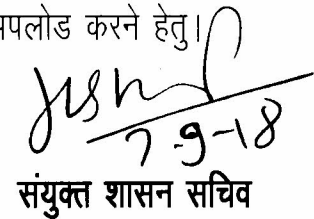 अपलोड करने हेतु।
7-9-18
संयुक्त शासन सचिव